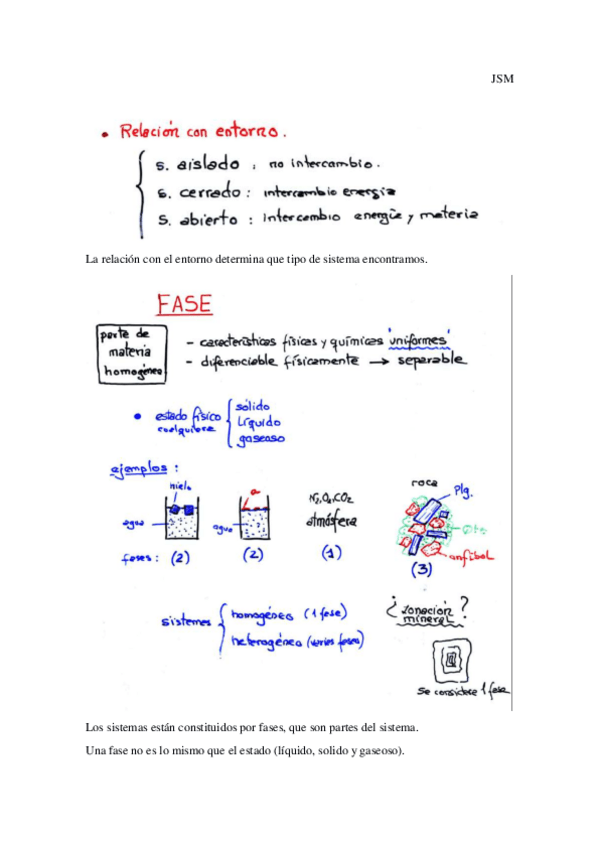 JSM
• Relación con entorno.
S. aislado : no intercambio.
S. cerrado : intercambio energía
S. abierto : intercambio energía y materia
La relación con el entorno determina que tipo de sistema encontramos.
FASE
parte de
materia
homogénea
- características físicas y químicas 'uniformes'
- diferenciable físicamente → separable
• estado físico
cualquiera
sólido
líquido
gaseoso
ejemplos :
hielo
agua
a
agua
N2, O2, CO2
atmósfera
roca
Plg.
anfíbol
fases : (2) (2) (1) (3)
sistemas
homogéneo (1 fase)
heterogéneo (varias fases)
¿zonación
mineral?
Se considera 1 fase
Los sistemas están constituidos por fases, que son partes del sistema.
Una fase no es lo mismo que el estado (líquido, solido y gaseoso).